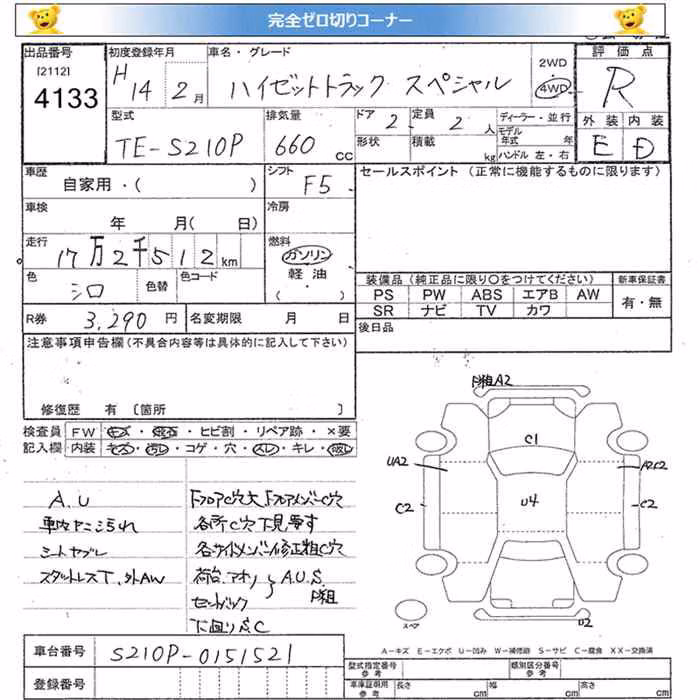 完全ゼロ切りコーナー
出品番号 初度登録年月 車名・グレード 2WD 評価点
[2112] H 14 2月 ハイゼットトラック スペシャル 4WD R
4133
型式 排気量 ドア 定員 ディーラー・並行 外装 内装
TE-S210P 660 CC 2 2 人 モデル年式 年 E D
形状 積載 kg ハンドル 左・右
車歴 シフト セールスポイント (正常に機能するものに限ります)
自家用・( ) F5
車検 冷房
年 月( 日)
走行 燃料
17万2千512 km ガソリン
軽油
( )
色 シロ 色替 色コード
装備品 (純正品に限り〇をつけてください) 新車保証書
PS PW ABS エアB AW 有・無
SR ナビ TV カワ
R券 3,290 円 名変期限 月 日
後日品
注意事項申告欄 (不具合内容等は具体的に記入して下さい)
修復歴 有 [箇所 ]
検査員 FW キズ・飛石・ヒビ割・リペア跡・×要
記入欄 内装 キズ・汚レ・コゲ・穴・スレ・キレ・破レ
A.U
車内ヤニ汚れ
シートヤブレ
スタットレスT、外AW
FフロアC穴大 FフロアメンバーC穴
各所C穴 下見要す
各サイドメンバー修正粗C穴
荷台、アオリ A.U.S.
セットバック F粗
下回りS.C
F粗A2
C1
UA2
C2
U4
C2
U2
スペア
A-キズ E-エクボ U-凹み W-補修跡 S-サビ C-腐食 XX-交換済
車台番号 S210P-0151521
型式指定番号 参考 類別区分番号 参考
登録番号
車庫証明用 参考 長さ cm 幅 cm 高さ cm